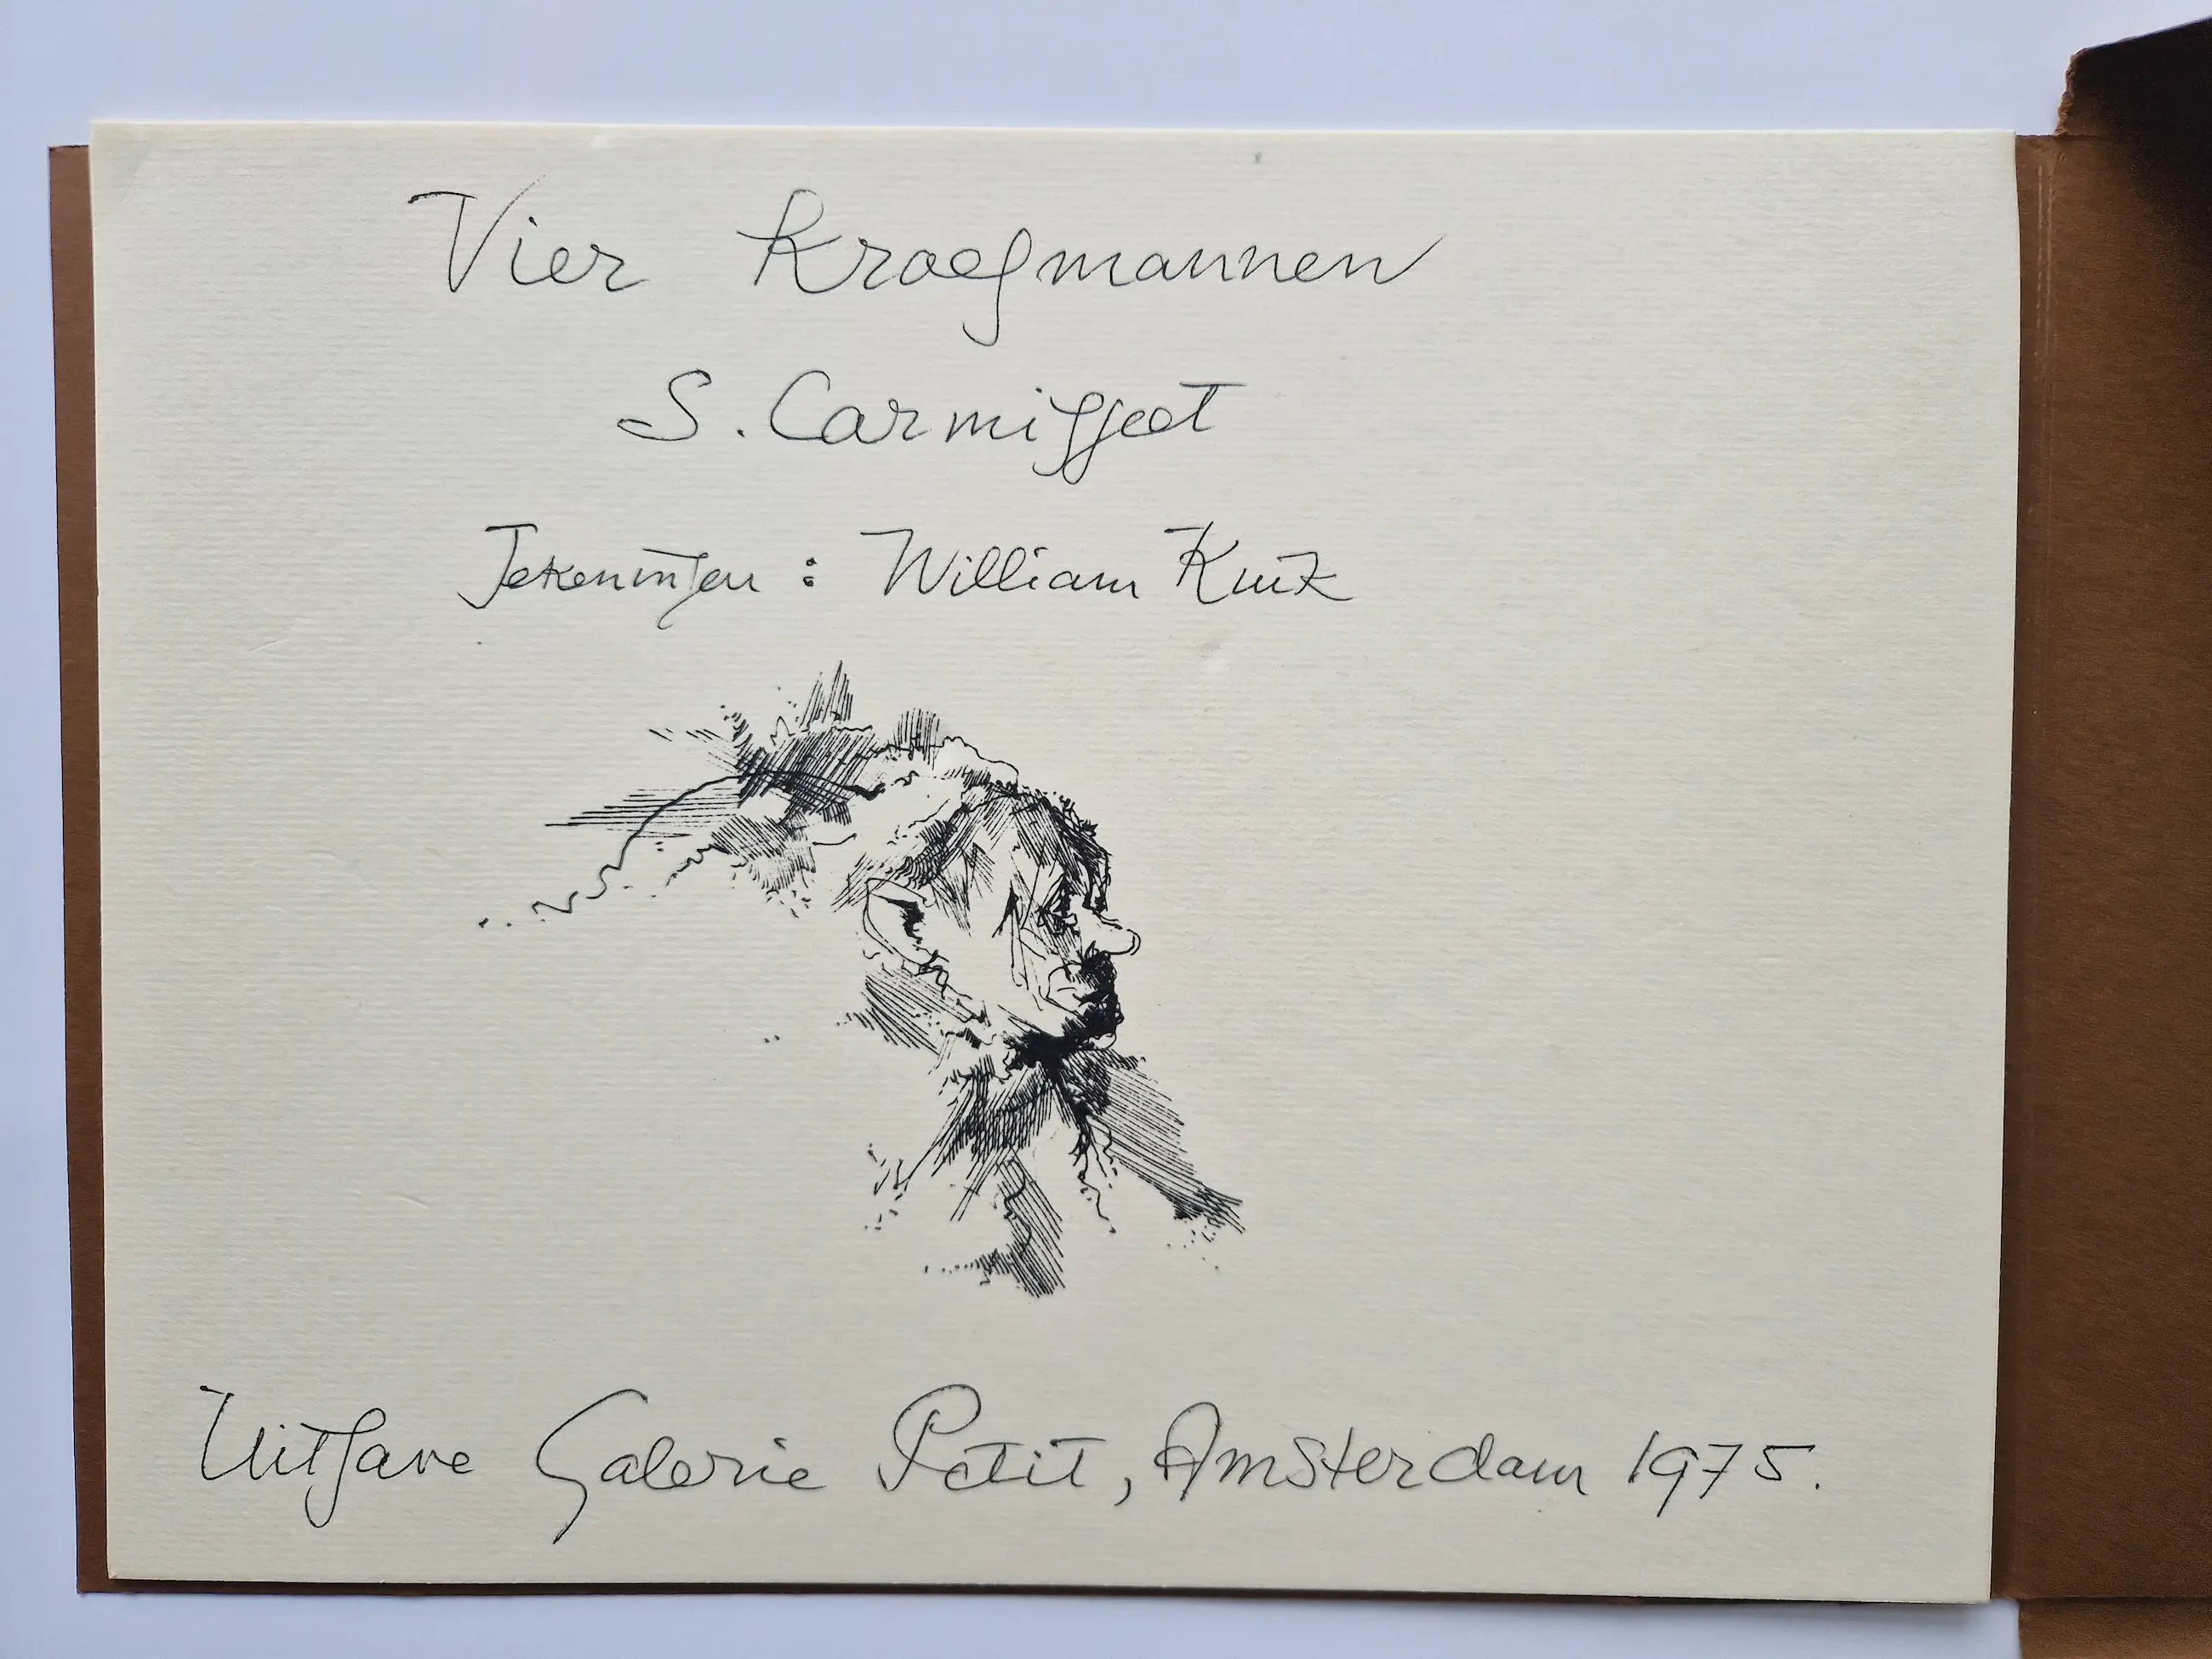 Vier Kroegmannen
S. Carmiggelt
Tekeningen: William Kuik
Uitgave Galerie Petit, Amsterdam 1975.